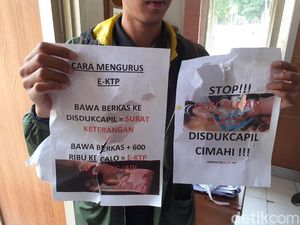 CARA MENGURUS
E-KTP
BAWA BERKAS KE
DISDUKCAPIL = SURAT
KETERANGAN
BAWA BERKAS + 600
RIBU KE CALO = E-KTP
STOP!!!
DISDUKCAPIL
CIMAHI !!!
detikcom